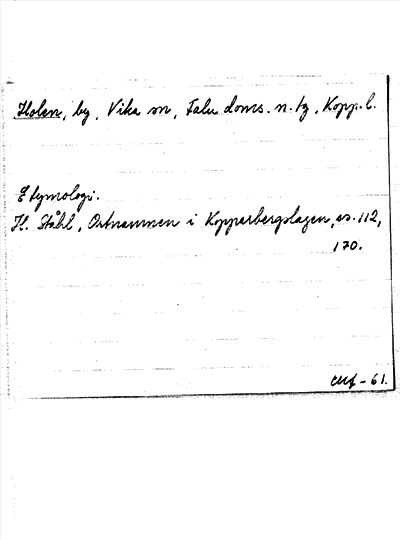 Holen, by, Vika sn, Falu doms. n. tg, Kopp. l.
Etymologi.
H. Ståhl, Ortnamnen i Kopparbergslagen, s. 112,
170.
-61.